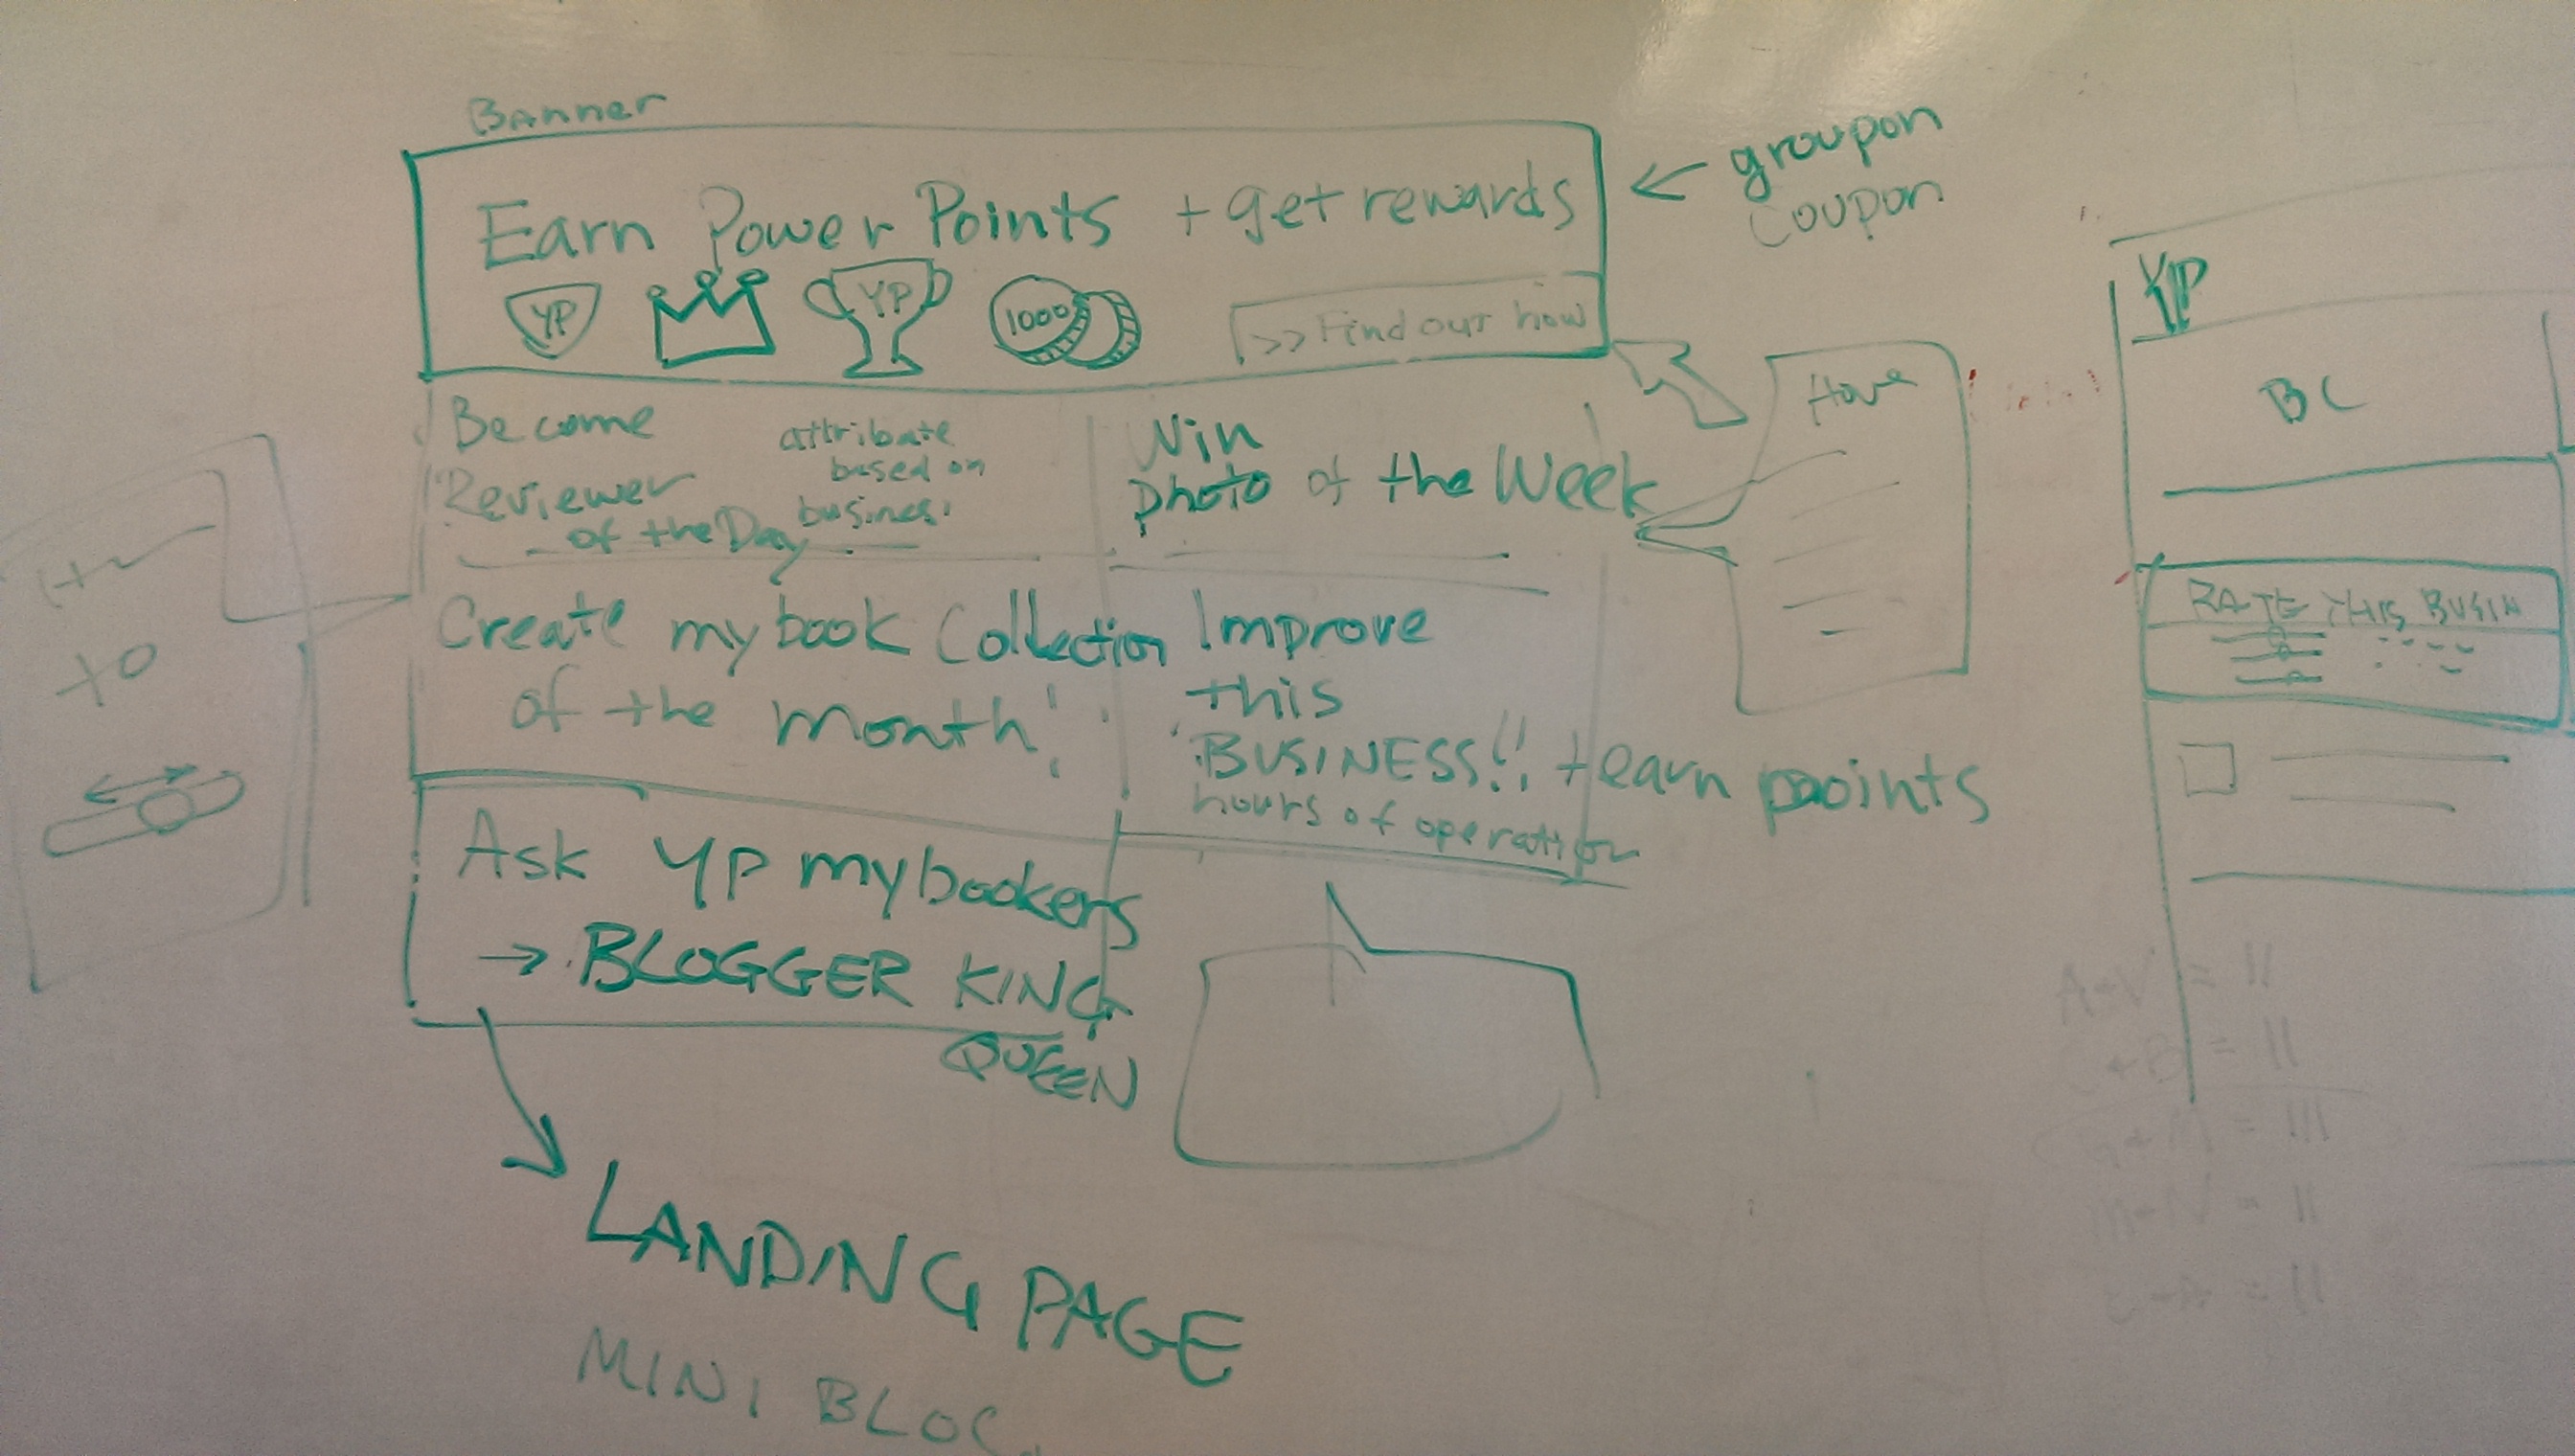 Banner
Earn Power Points + get rewards
← groupon
coupon
YP
YP
1000
>> Find out how
Become
Reviewer
of the Day
attribute
based on
business
Win
photo of the Week
How
Create mybook Collection
of the month!
Improve
this
BUSINESS!! + earn points
hours of operation
Ask YP mybookers
→ BLOGGER KING
QUEEN
LANDING PAGE
MINI BLOG
to
YP
BC
RATE THIS BUSIN